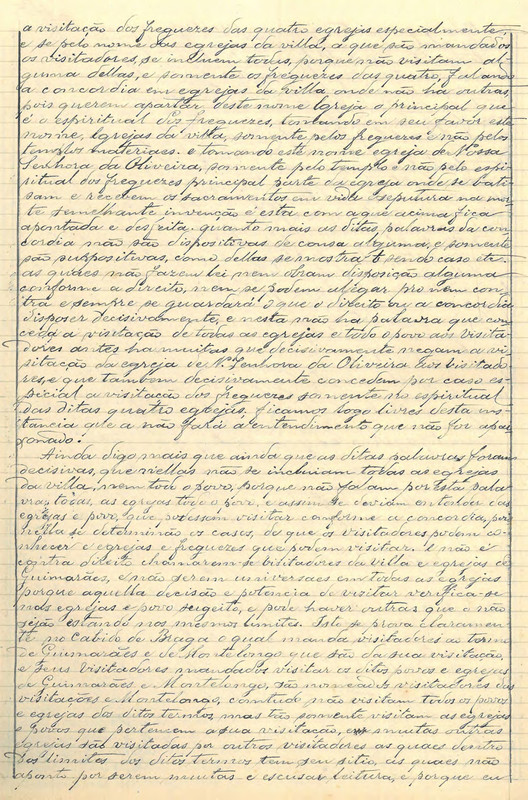 a visitação dos freguezes das quatro egrejas especialmente,
e se pelo nome das egrejas da villa, a que são mandados
os visitadores, se incluem todas, porque não visitam al
guma dellas, e somente os freguezes das quatro, falando
a concordia em egrejas da villa onde não ha outras,
pois querem apartar, deste nome Igreja o principal que
é o espiritual dos freguezes, tomando em seu favor este
nome, Igrejas da villa, somente pelos freguezes e não pelos
templos materiaes. e tomando este nome egreja de Nossa
Senhora da Oliveira, somente pelo templo e não pelo espi
ritual dos freguezes principal parte da egreja onde se bati
sam e recebem os sacramentos em vida e sepultura na mor
te semelhante invenção é esta com a que acima fica
apontada e desfeita. quanto mais as ditas, palavras da con
cordia não são dispositivas de cousa alguma, e somente
são suppositivas, como dellas se mostra e sendo caso etc.
as quaes não fazem lei nem obram disposição alguma
conforme a direito, nem se podem allegar pro nem con
tra e sempre se guardará o que o direito ou a concordia
dispozer decisivamente, e nesta não ha palavra que con
ceda a visitação de todas as egrejas e todo o povo aos visita
dores antes ha muitas que decisivamente negam a vi
sitação da egreja de N. Senhora da Oliveira aos visitado
res, e que tambem decisivamente concedem por caso es
pecial a visitação dos freguezes somente no espiritual
das ditas quatro egrejas, ficamos logo livres desta ins
tancia que a não fará a entendimento que não for apai
xonado.
Ainda digo mais que ainda que as ditas palavras foram
decisivas, que nellas não se incluiam todas as egrejas
da villa, nem todo o povo, porque não falam por esta pala
vra, todas, as egrejas todo o povo, e assim se deviam entender das
egrejas e povo, que podessam visitar conforme a concordia, pois
nella se determinão os casos, de que os visitadores podem co
nhecer e egrejas e freguezes que podem visitar. E não é
contra direito chamarem-se visitadores da villa e egrejas de
Guimarães, e não serem universaes em todas as egrejas
porque aquella decisão e potencia de visitar verifica-se
nas egrejas e povo sugeito, e pode haver outras que o não
sejão estando nos mesmos limites. Isto se prova claramen
te no Cabido de Braga o qual manda visitadores ao termo
de Guimarães e de Montelongo que são da sua visitação,
e seus visitadores mandados visitar os ditos povos e egrejas
de Guimarães e Montelongo, são nomeados visitadores das
visitações e Montelongo, comtudo não visitam todos os povos
e egrejas dos ditos termos, mas tão somente visitam as egrejas
e povos que pertencem a sua visitação, e muitas outras
egrejas são visitadas por outros visitadores as quaes dentro
dos limites dos ditos termos tem seu sitio, as quaes não
aponto por serem muitas e escusar leitura, e porque eu